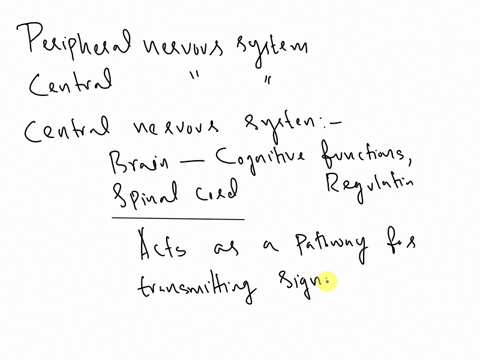 Peripheral nervous system
Central " "
Central nervous system:-
Brain — Cognitive functions,
Spinal cord Regulatin
Acts as a pathway for
transmitting sign